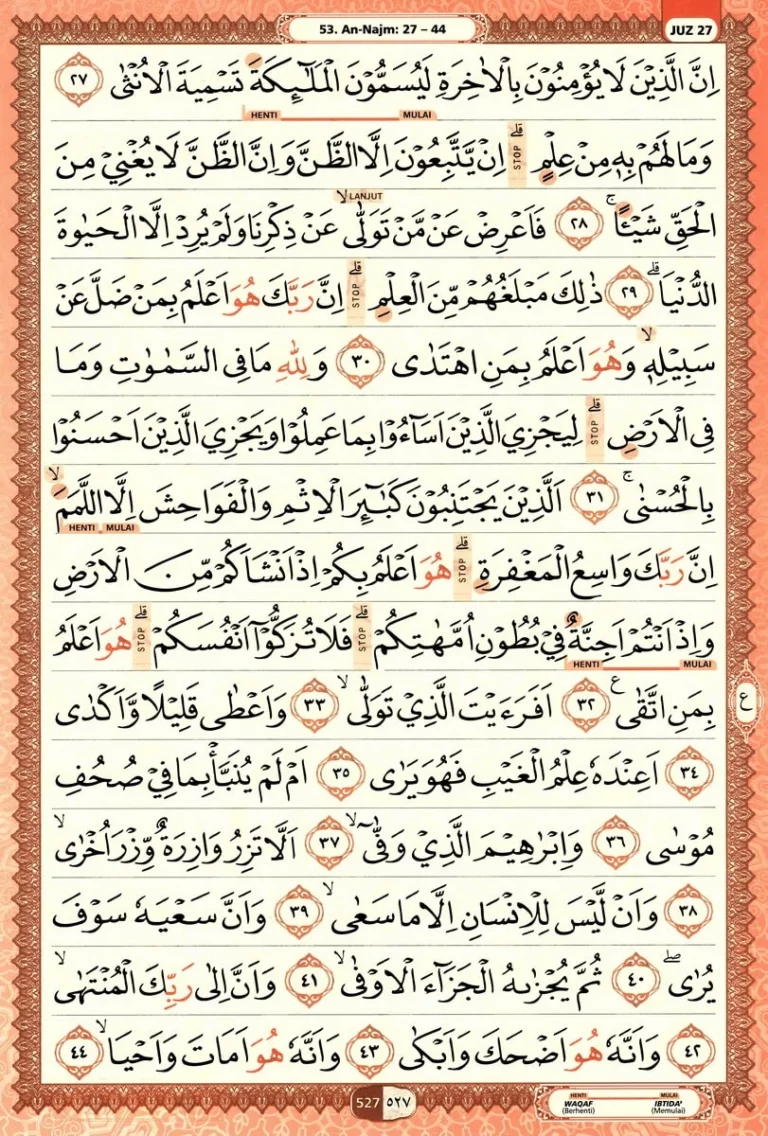 53. An-Najm: 27 – 44
JUZ 27
اِنَّ الَّذِيْنَ لَا يُؤْمِنُوْنَ بِالْاٰخِرَةِ لَيُسَمُّوْنَ الْمَلٰۤىِٕكَةَ تَسْمِيَةَ الْاُنْثٰى ٢٧
HENTI MULAI
وَمَا لَهُمْ بِهٖ مِنْ عِلْمٍۗ STOP اِنْ يَّتَّبِعُوْنَ اِلَّا الظَّنَّ وَاِنَّ الظَّنَّ لَا يُغْنِيْ مِنَ
LANJUT
الْحَقِّ شَيْـًٔاۚ ٢٨ فَاَعْرِضْ عَنْ مَّنْ تَوَلّٰىۙ عَنْ ذِكْرِنَا وَلَمْ يُرِدْ اِلَّا الْحَيٰوةَ
الدُّنْيَاۗ ٢٩ ذٰلِكَ مَبْلَغُهُمْ مِّنَ الْعِلْمِۗ STOP اِنَّ رَبَّكَ هُوَ اَعْلَمُ بِمَنْ ضَلَّ عَنْ
سَبِيْلِهٖۙ وَهُوَ اَعْلَمُ بِمَنِ اهْتَدٰى ٣٠ وَلِلّٰهِ مَا فِى السَّمٰوٰتِ وَمَا
فِى الْاَرْضِۗ STOP لِيَجْزِيَ الَّذِيْنَ اَسَاۤءُوْا بِمَا عَمِلُوْا وَيَجْزِيَ الَّذِيْنَ اَحْسَنُوْا
بِالْحُسْنٰىۚ ٣١ اَلَّذِيْنَ يَجْتَنِبُوْنَ كَبٰۤىِٕرَ الْاِثْمِ وَالْفَوَاحِشَ اِلَّا اللَّمَمَۙ
HENTI MULAI
اِنَّ رَبَّكَ وَاسِعُ الْمَغْفِرَةِۗ STOP هُوَ اَعْلَمُ بِكُمْ اِذْ اَنْشَاَكُمْ مِّنَ الْاَرْضِ
وَاِذْ اَنْتُمْ اَجِنَّةٌ فِيْ بُطُوْنِ اُمَّهٰتِكُمْۗ STOP فَلَا تُزَكُّوْٓا اَنْفُسَكُمْۗ STOP هُوَ اَعْلَمُ
HENTI MULAI
بِمَنِ اتَّقٰى ࣖ ٣٢ اَفَرَءَيْتَ الَّذِيْ تَوَلّٰىۙ ٣٣ وَاَعْطٰى قَلِيْلًا وَّاَكْدٰى
ع
٣٤ اَعِنْدَهٗ عِلْمُ الْغَيْبِ فَهُوَ يَرٰى ٣٥ اَمْ لَمْ يُنَبَّأْ بِمَا فِيْ صُحُفِ
مُوْسٰى ٣٦ وَاِبْرٰهِيْمَ الَّذِيْ وَفّٰىٓۙ ٣٧ اَلَّا تَزِرُ وَازِرَةٌ وِّزْرَ اُخْرٰىۙ
٣٨ وَاَنْ لَّيْسَ لِلْاِنْسَانِ اِلَّا مَا سَعٰىۙ ٣٩ وَاَنَّ سَعْيَهٗ سَوْفَ
يُرٰىۖ ٤٠ ثُمَّ يُجْزٰىهُ الْجَزَاۤءَ الْاَوْفٰىۙ ٤١ وَاَنَّ اِلٰى رَبِّكَ الْمُنْتَهٰىۙ
٤٢ وَاَنَّهٗ هُوَ اَضْحَكَ وَاَبْكٰى ٤٣ وَاَنَّهٗ هُوَ اَمَاتَ وَاَحْيَاۙ ٤٤
527 ٥٢٧
HENTI MULAI
WAQAF IBTIDA'
(Berhenti) (Memulai)